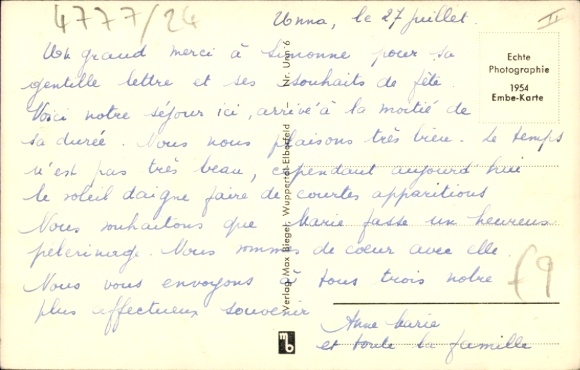 4777/24
Unna, le 27 juillet.
II
Un grand merci à Simonne pour sa
gentille lettre et ses souhaits de fête.
Voici notre séjour ici, arrivé à la moitié de
sa durée. Nous nous plaisons très bien. Le temps
n'est pas très beau, cependant aujourd'hui
le soleil daigne faire de courtes apparitions
Nous souhaitons que Marie fasse un heureux
pélerinage. Nous sommes de cœur avec elle.
Nous vous envoyons à tous trois notre
plus affectueux souvenir
Anne Marie
et toute la famille
Echte
Photographie
1954
Embe-Karte
Verlag: Max Biegel, Wuppertal-Elberfeld — Nr. Un 6
mb